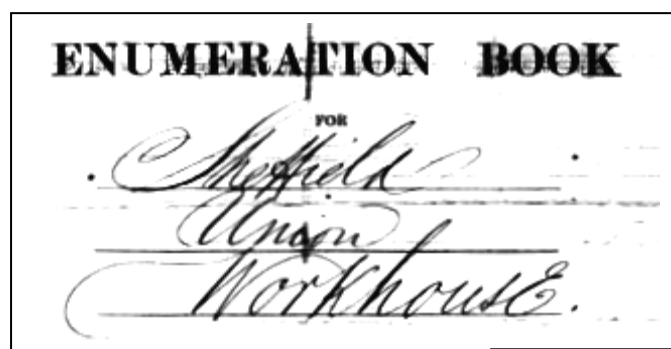 ENUMERATION BOOK
FOR
Sheffield
Union
WorkhousE.